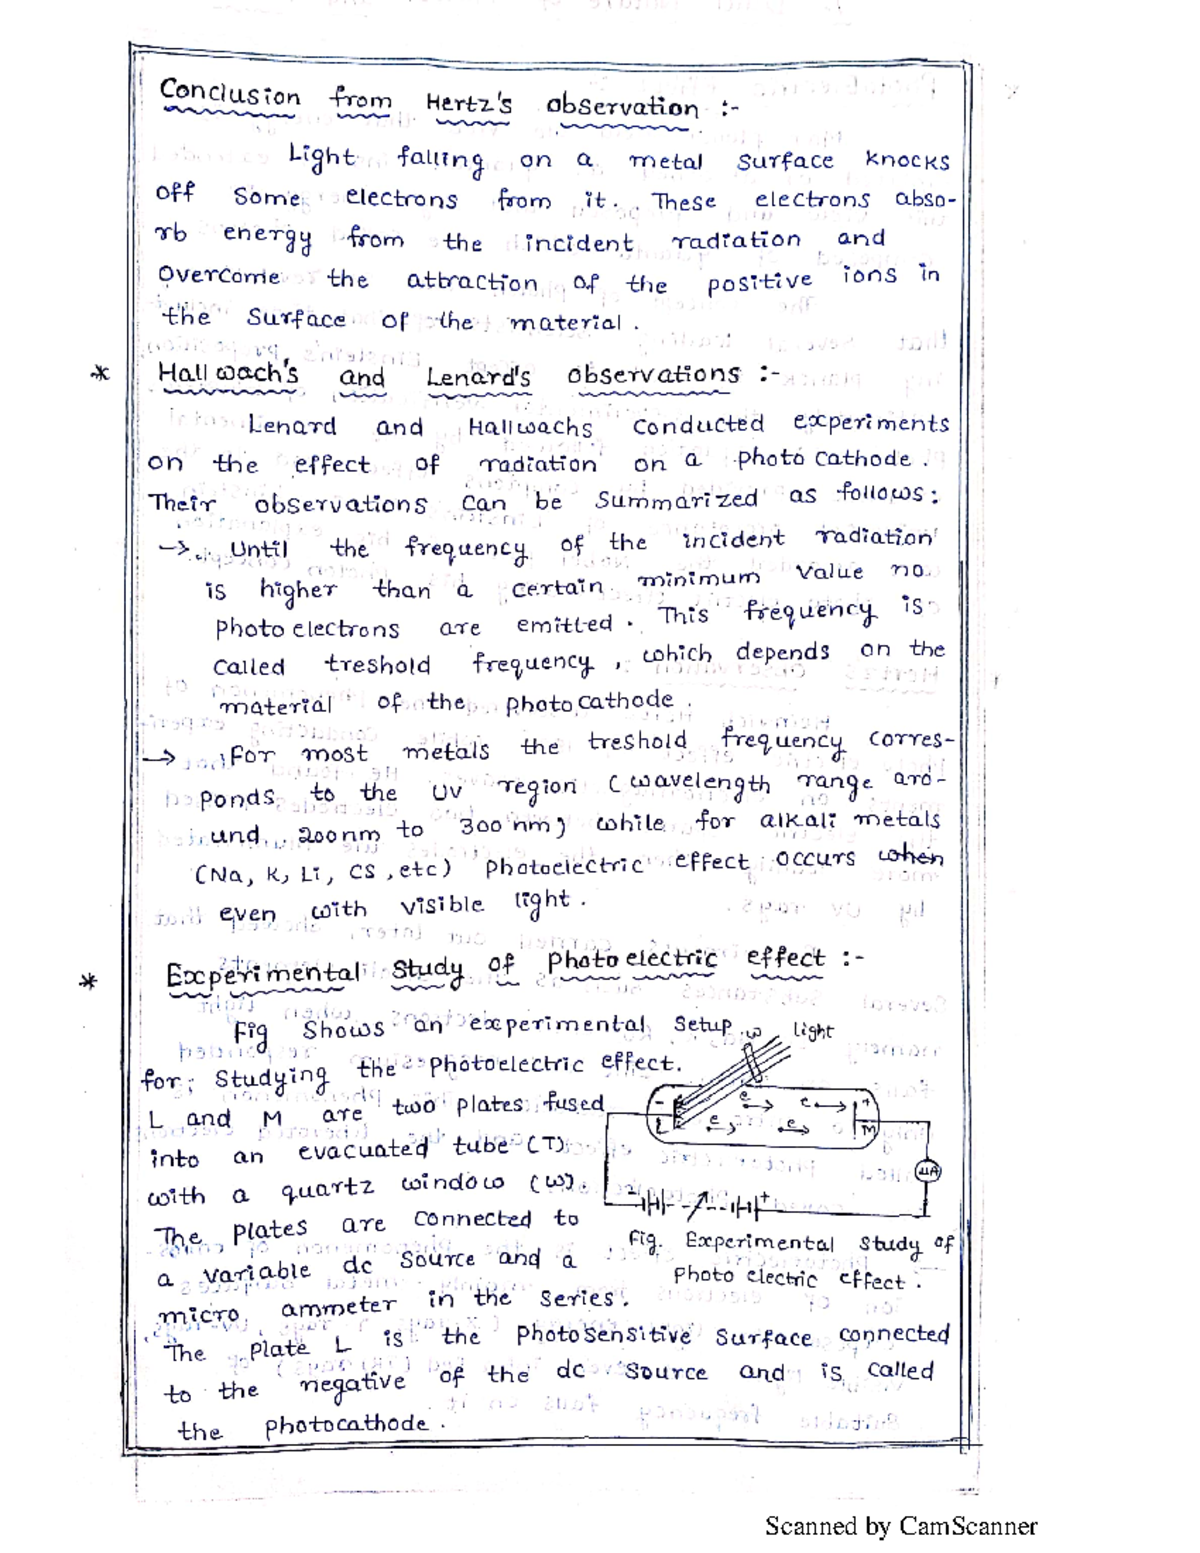 Conclusion from Hertz's observation :-
Light falling on a metal surface knocks
off some electrons from it. These electrons abso-
rb energy from the incident radiation and
overcome the attraction of the positive ions in
the surface of the material.
* Hallwach's and Lenard's observations :-
Lenard and Hallwachs conducted experiments
on the effect of radiation on a photo cathode.
Their observations can be summarized as follows:
→ Until the frequency of the incident radiation
is higher than a certain minimum value no
photo electrons are emitted. This frequency is
called treshold frequency, which depends on the
material of the photo cathode.
→ For most metals the treshold frequency corres-
ponds to the UV region (wavelength range aro-
und 200nm to 300 nm) while for alkali metals
(Na, K, Li, CS, etc) photoelectric effect occurs when
even with visible light.
* Experimental study of Photo electric effect :-
Fig shows an experimental setup
for studying the photoelectric effect.
L and M are two plates fused
into an evacuated tube (T)
with a quartz window (W).
The plates are connected to
a variable dc source and a
micro ammeter in the series.
The plate L is the photosensitive surface connected
to the negative of the dc source and is called
the photocathode.
W light
- e e +
L e e M
μA
- +
Fig. Experimental study of
photo electric effect.
Scanned by CamScanner